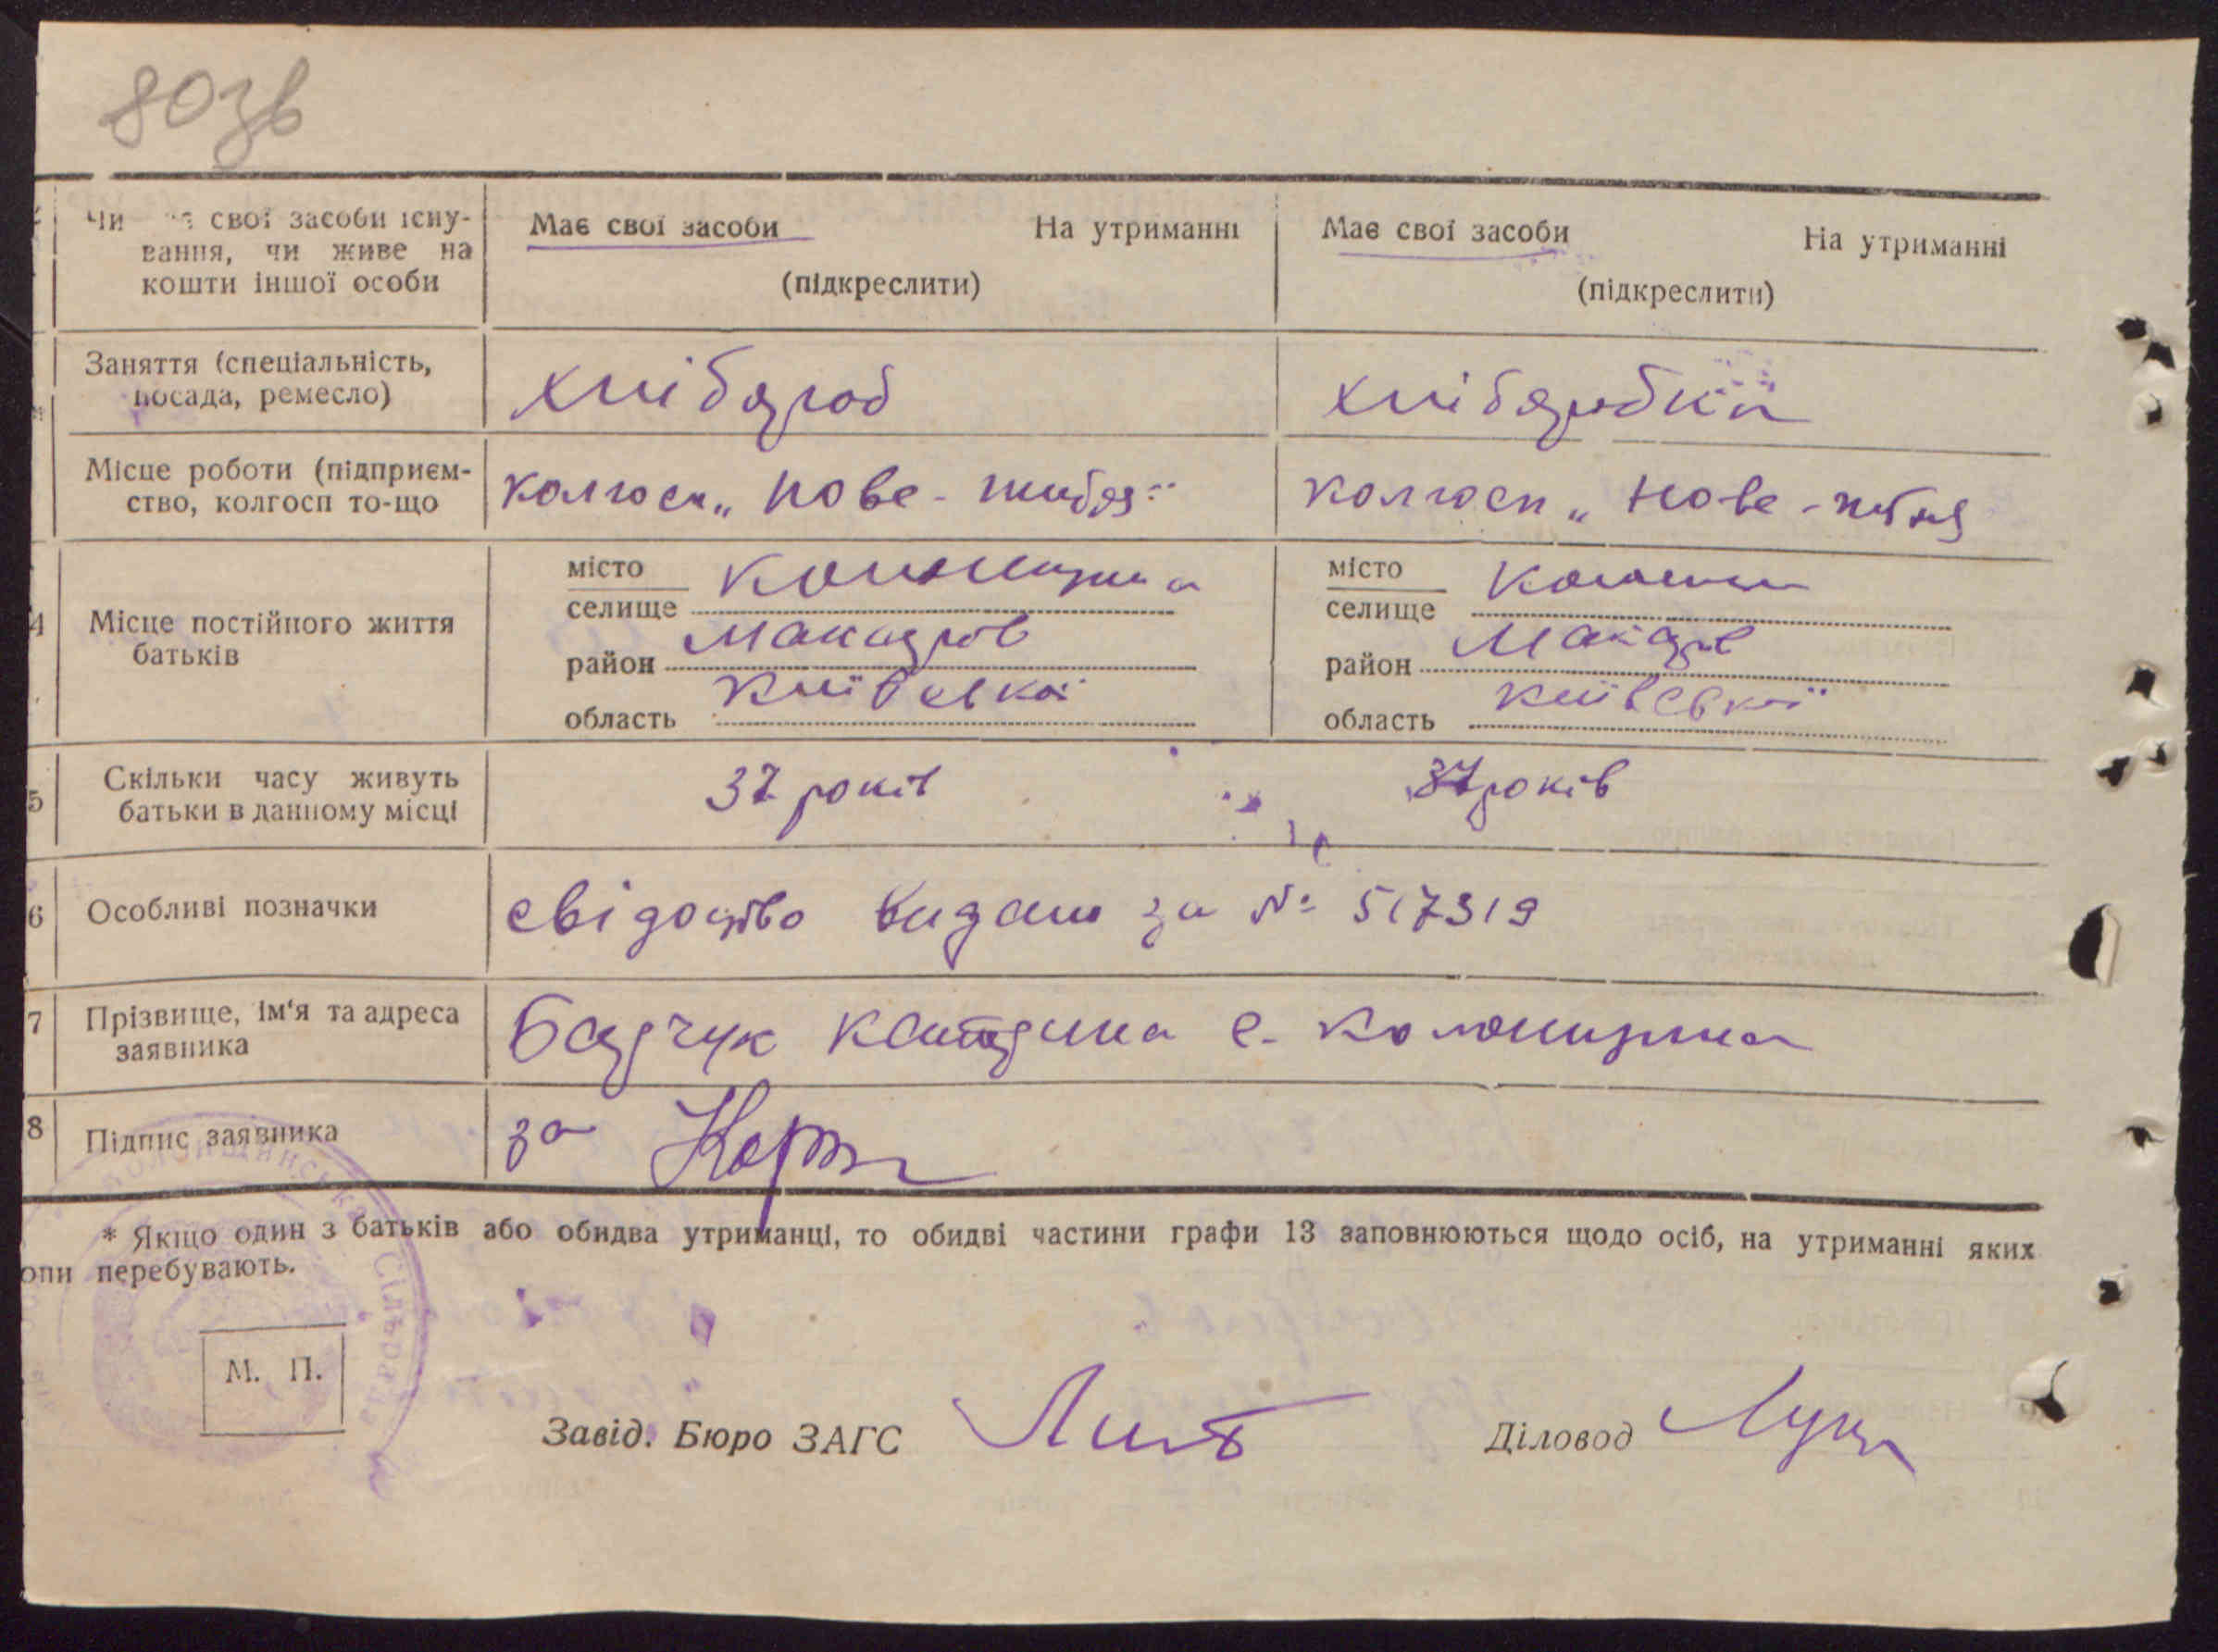 80зв
Чи свої засоби існу-
вання, чи живе на
кошти іншої особи
Має свої засоби На утриманні
(підкреслити)
Має свої засоби На утриманні
(підкреслити)
Заняття (спеціальність,
посада, ремесло)
хлібороб
хліборобка
Місце роботи (підприєм-
ство, колгосп то-що
колгосп „ нове-життя"
колгосп „ нове-життя
4
Місце постійного життя
батьків
місто
селище Колонщина
район Макарів
область Київської
місто
селище
район Макарів
область Київської
5
Скільки часу живуть
батьки в данному місці
37 років
37 років
6
Особливі позначки
свідоцтво видано за № 517319
7
Прізвище, ім'я та адреса
заявника
катерина с. Колонщина
8
Підпис заявника
за
* Якщо один з батьків або обидва утриманці, то обидві частини графи 13 заповнюються щодо осіб, на утриманні яких
они перебувають.
Сільрада
М. П.
Завід. Бюро ЗАГС
Діловод